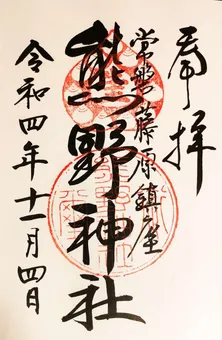 奉拝
常磐藤原鎮座
熊野神社
令和四年十一月四日